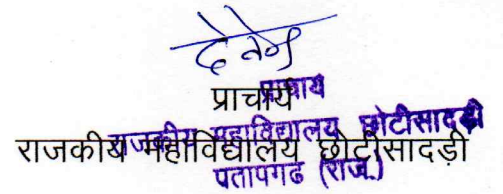 प्राचार्य
प्राचार्य
राजकीय महाविद्यालय छोटीसादड़ी
राजकीय महाविद्यालय छोटीसादड़ी
प्रतापगढ (राज.)